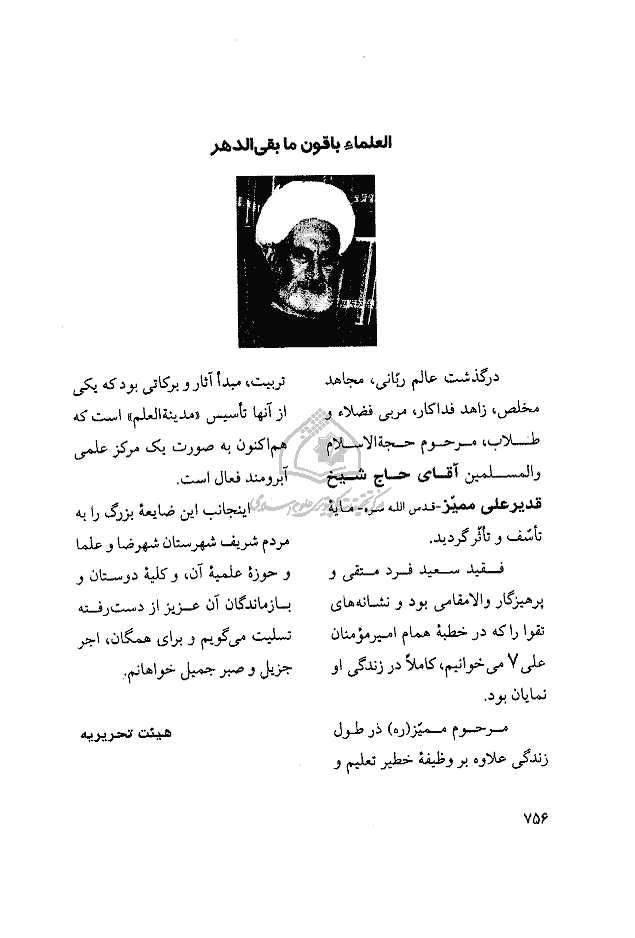 العلماء باقون ما بقی الدهر
درگذشت عالم ربّانی، مجاهد
مخلص، زاهد فداکار، مربی فضلاء و
طلاب، مرحوم حجةالاسلام
والمسلمین آقای حاج شیخ
قدیرعلی ممیّز-قدس الله سره- مایهٔ
تأسّف و تأثّر گردید.
فقید سعید فرد متقی و
پرهیزگار والامقامی بود و نشانه‌های
تقوا را که در خطبهٔ همام امیرمؤمنان
علی ۷ می‌خوانیم، کاملاً در زندگی او
نمایان بود.
مرحوم ممیّز(ره) ذر طول
زندگی علاوه بر وظیفهٔ خطیر تعلیم و
تربیت، مبدأ آثار و برکاتی بود که یکی
از آنها تأسیس «مدینةالعلم» است که
هم‌اکنون به صورت یک مرکز علمی
آبرومند فعال است.
اینجانب این ضایعهٔ بزرگ را به
مردم شریف شهرستان شهرضا و علما
و حوزهٔ علمیهٔ آن، و کلیهٔ دوستان و
بازماندگان آن عزیز از دست‌رفته
تسلیت می‌گویم و برای همگان، اجر
جزیل و صبر جمیل خواهانم.
هیئت تحریریه
۷۵۶